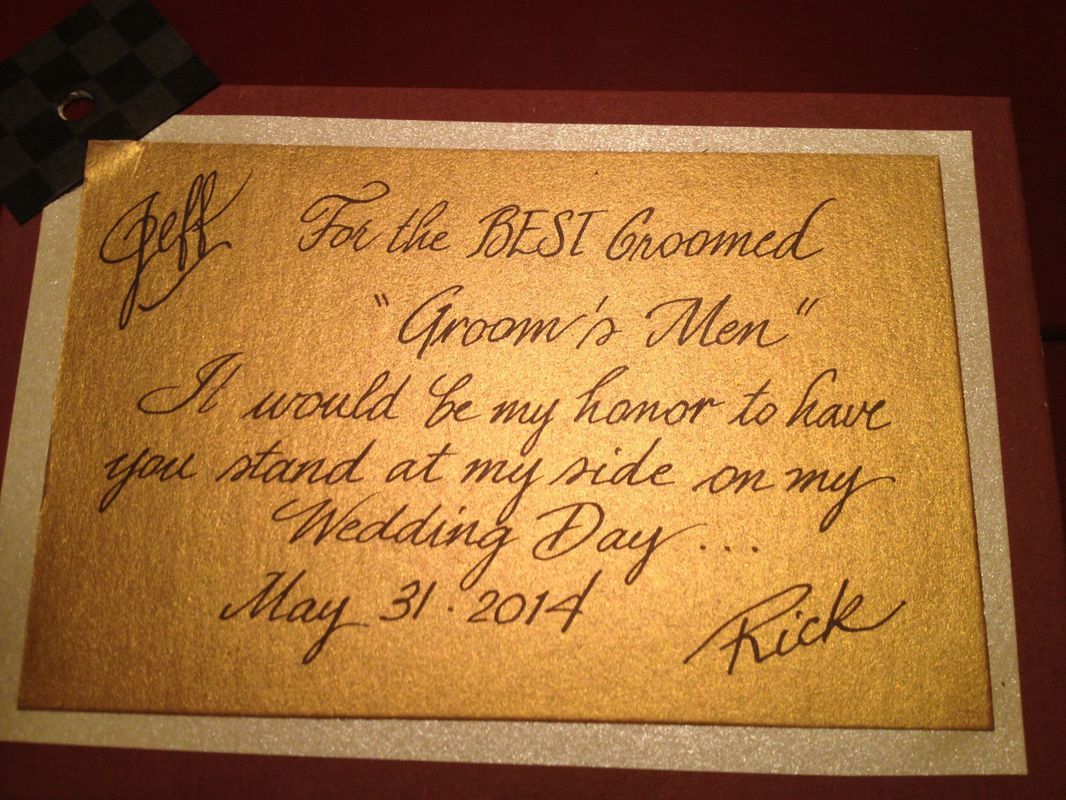 Jeff For the BEST Groomed
"Groom's Men"
It would be my honor to have
you stand at my side on my
Wedding Day...
May 31. 2014
Rick